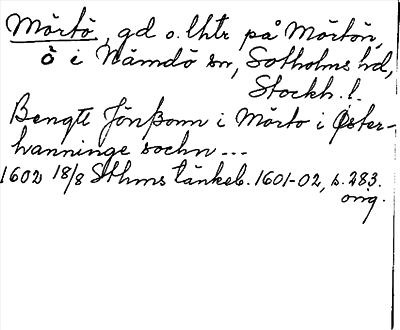 Mörtö, gd o. lhtr på Mörtön,
ö i Nämdö sn, Sotholms hd,
Stockh. l.
Bengtt Jönßonn i Mörto i Öster-
hanninge sochn ...
1602 18/8 Sthms tänkeb. 1601-02, s. 283.
orig.